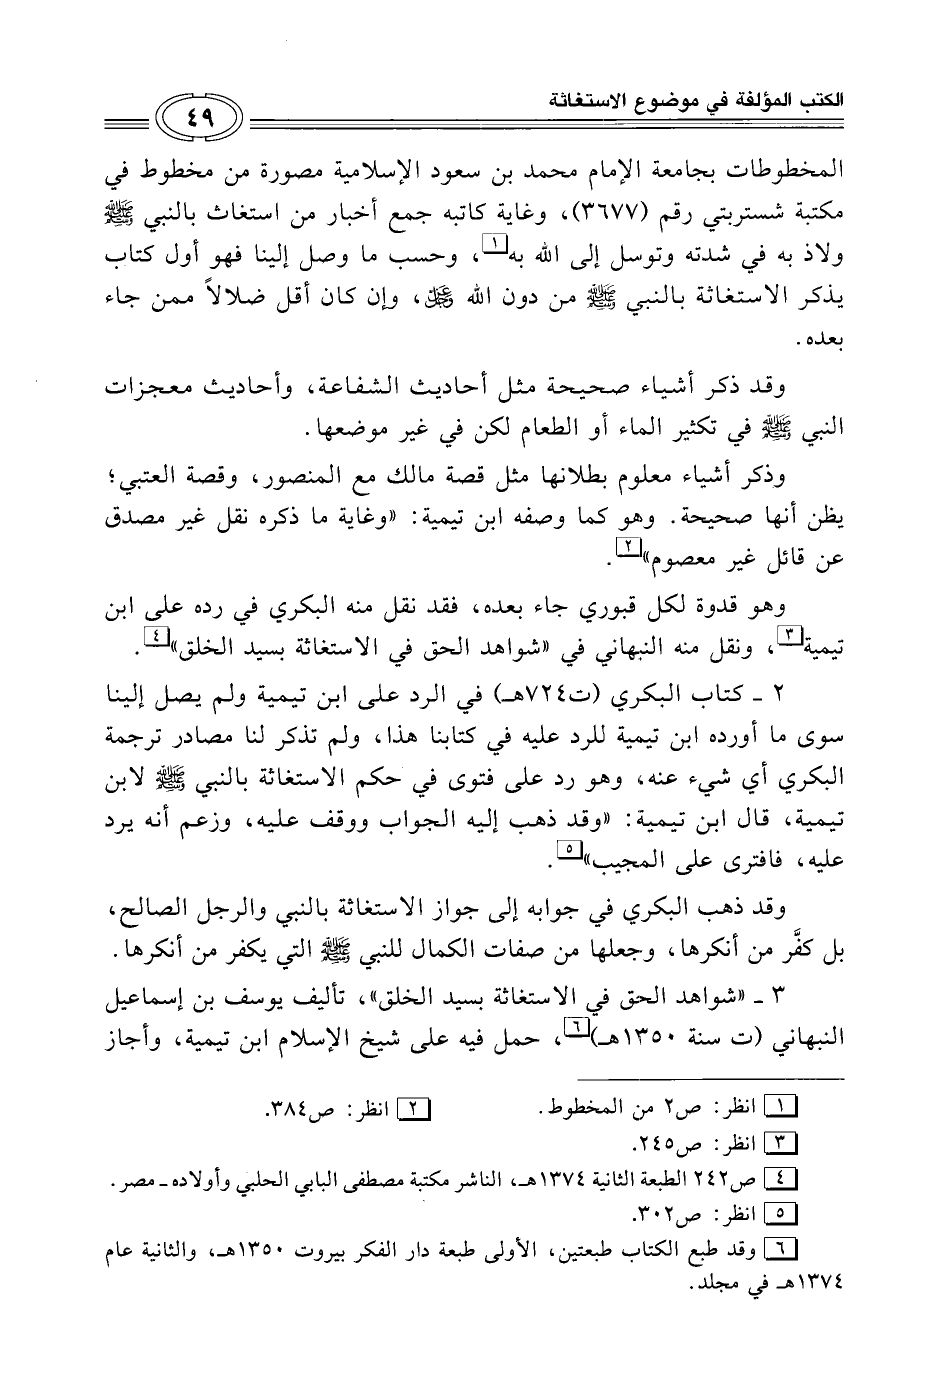 الكتب المؤلفة في موضوع الاستغاثة
٤٩
المخطوطات بجامعة الإمام محمد بن سعود الإسلامية مصورة من مخطوط في
مكتبة شستربتي رقم (٣٦٧٧)، وغاية كاتبه جمع أخبار من استغاث بالنبي ﷺ
ولاذ به في شدته وتوسل إلى الله به[١]، وحسب ما وصل إلينا فهو أول كتاب
يذكر الاستغاثة بالنبي ﷺ من دون الله ﷻ، وإن كان أقل ضلالاً ممن جاء
بعده.
وقد ذكر أشياء صحيحة مثل أحاديث الشفاعة، وأحاديث معجزات
النبي ﷺ في تكثير الماء أو الطعام لكن في غير موضعها.
وذكر أشياء معلوم بطلانها مثل قصة مالك مع المنصور، وقصة العتبي؛
يظن أنها صحيحة. وهو كما وصفه ابن تيمية: «وغاية ما ذكره نقل غير مصدق
عن قائل غير معصوم»[٢].
وهو قدوة لكل قبوري جاء بعده، فقد نقل منه البكري في رده على ابن
تيمية[٣]، ونقل منه النبهاني في «شواهد الحق في الاستغاثة بسيد الخلق»[٤].
٢ ـ كتاب البكري (ت٧٢٤هـ) في الرد على ابن تيمية ولم يصل إلينا
سوى ما أورده ابن تيمية للرد عليه في كتابنا هذا، ولم تذكر لنا مصادر ترجمة
البكري أي شيء عنه، وهو رد على فتوى في حكم الاستغاثة بالنبي ﷺ لابن
تيمية، قال ابن تيمية: «وقد ذهب إليه الجواب ووقف عليه، وزعم أنه يرد
عليه، فافترى على المجيب»[٥].
وقد ذهب البكري في جوابه إلى جواز الاستغاثة بالنبي والرجل الصالح،
بل كفَّر من أنكرها، وجعلها من صفات الكمال للنبي ﷺ التي يكفر من أنكرها.
٣ ـ «شواهد الحق في الاستغاثة بسيد الخلق»، تأليف يوسف بن إسماعيل
النبهاني (ت سنة ١٣٥٠هـ)[٦]، حمل فيه على شيخ الإسلام ابن تيمية، وأجاز
[١] انظر: ص٢ من المخطوط. [٢] انظر: ص٣٨٤.
[٣] انظر: ص٢٤٥.
[٤] ص٢٤٢ الطبعة الثانية ١٣٧٤هـ، الناشر مكتبة مصطفى البابي الحلبي وأولاده ـ مصر.
[٥] انظر: ص٣٠٢.
[٦] وقد طبع الكتاب طبعتين، الأولى طبعة دار الفكر بيروت ١٣٥٠هـ، والثانية عام
١٣٧٤هـ في مجلد.